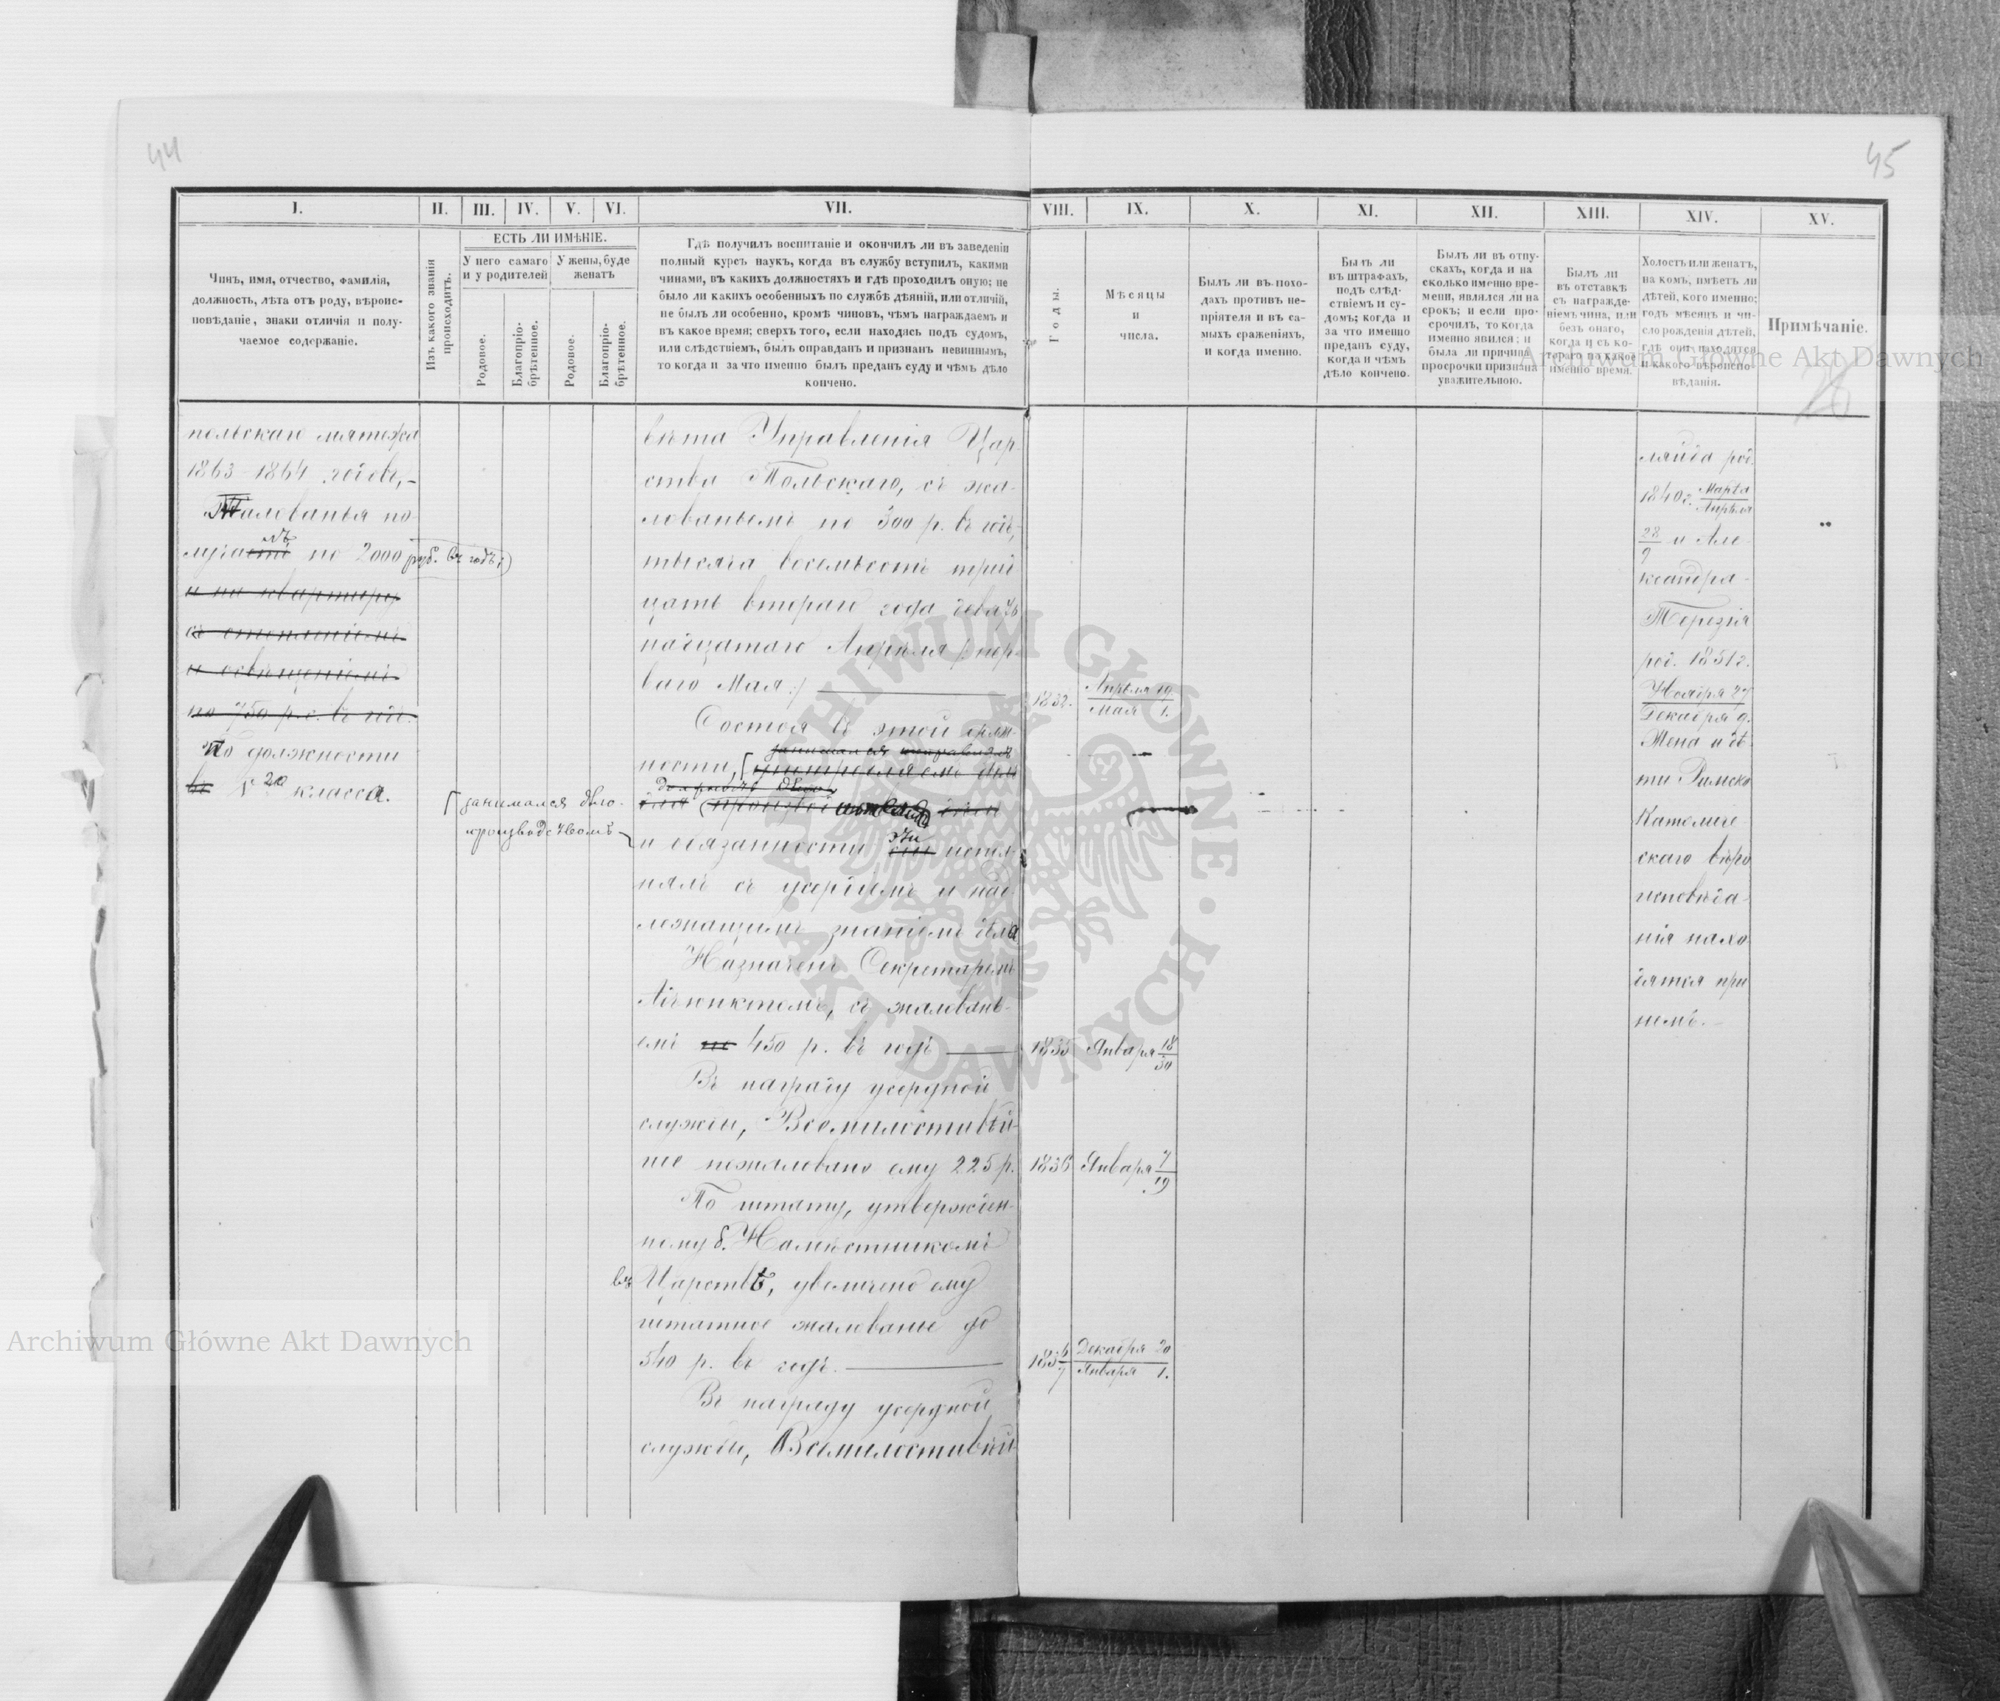 44
45
I.
II.
III.
IV.
V.
VI.
VII.
VIII.
IX.
X.
XI.
XII.
XIII.
XIV.
XV.
Чинъ, имя, отчество, фамилія,
должность, лѣта отъ роду, вѣроис-
повѣданіе, знаки отличія и полу-
чаемое содержаніе.
Изъ какого званія
происходитъ.
ЕСТЬ ЛИ ИМѢНІЕ.
У него самаго
и у родителей
У жены, буде
женатъ
Родовое.
Благопріо-
брѣтенное.
Родовое.
Благопріо-
брѣтенное.
Гдѣ получилъ воспитаніе и окончилъ ли въ заведеніи
полный курсъ наукъ, когда въ службу вступилъ, какими
чинами, въ какихъ должностяхъ и гдѣ проходилъ оную; не
было ли какихъ особенныхъ по службѣ дѣяній, или отличій,
не былъ ли особенно, кромѣ чиновъ, чѣмъ награждаемъ и
въ какое время; сверхъ того, если находясь подъ судомъ,
или слѣдствіемъ, былъ оправданъ и признанъ невиннымъ,
то когда и за что именно былъ преданъ суду и чѣмъ дѣло
кончено.
Годы.
Мѣсяцы
и
числа.
Былъ ли въ похо-
дахъ противъ не-
пріятеля и въ са-
мыхъ сраженіяхъ,
и когда именно.
Былъ ли
въ штрафахъ,
подъ слѣд-
ствіемъ и су-
домъ; когда и
за что именно
преданъ суду,
когда и чѣмъ
дѣло кончено.
Былъ ли въ отпу-
скахъ, когда и на
сколько именно вре-
мени, являлся ли на
срокъ; и если про-
срочилъ, то когда
именно явился; и
была ли причина
просрочки признана
уважительною.
Былъ ли
въ отставкѣ
съ награжде-
ніемъ чина, или
безъ онаго,
когда и съ ко-
тораго по какое
именно время.
Холостъ или женатъ,
на комъ, имѣетъ ли
дѣтей, кого именно;
годъ мѣсяцъ и чи-
сло рожденія дѣтей,
гдѣ они находятся
и какого вѣроиспо-
вѣданія.
Примѣчаніе.
польскаго мятежа
1863-1864 годовъ,-
Жалованья по-
лучаетъ по 2000 руб. въ годъ;)
и на квартиру
съ отопленіемъ
и освѣщеніемъ
по 750 р.с. въ годъ.
По должности
въ V классѣ.
занимался дѣло-
производствомъ
вѣта Управленія Цар-
ства Польскаго, съ жа-
лованьемъ по 300 р. въ годъ,
тысяча восемьсотъ трид
цать втораго года девят
надцатаго Апрѣля / пер-
ваго Мая :/
Состоя въ этой долж-
ности,
и обязанности эти испол-
нялъ съ усердіемъ и над-
лежащимъ знаніемъ дѣла
Назначенъ Секретаремъ
Адъюнктомъ, съ жаловань-
емъ по 450 р. въ годъ
Въ награду усердной
службы, Всемилостивѣй-
ше пожаловано ему 225 р.
По штату, утвержден-
ному б. Намѣстникомъ
въ Царствѣ, увеличено ему
штатное жалованье до
540 р. въ годъ.
Въ награду усердной
службы, Всемилостивѣй
1832.
Апрѣля 19
Мая 1.
1835
Января 18
30
1836
Января 7
19
1836
7
Декабря 20
Января 1.
род.
1840 г. Марта
Апрѣля
28
9 и Але-
ксандра-
Терезія
род. 1851 г.
Ноября 27
Декабря 9.
Жена и дѣ
ти Римско
Католиче
скаго вѣро
исповѣда-
нія нахо
дятся при
немъ.-
Archiwum Główne Akt Dawnych
Archiwum Główne Akt Dawnych
ARCHIWUM GŁÓWNE · AKT DAWNYCH ·